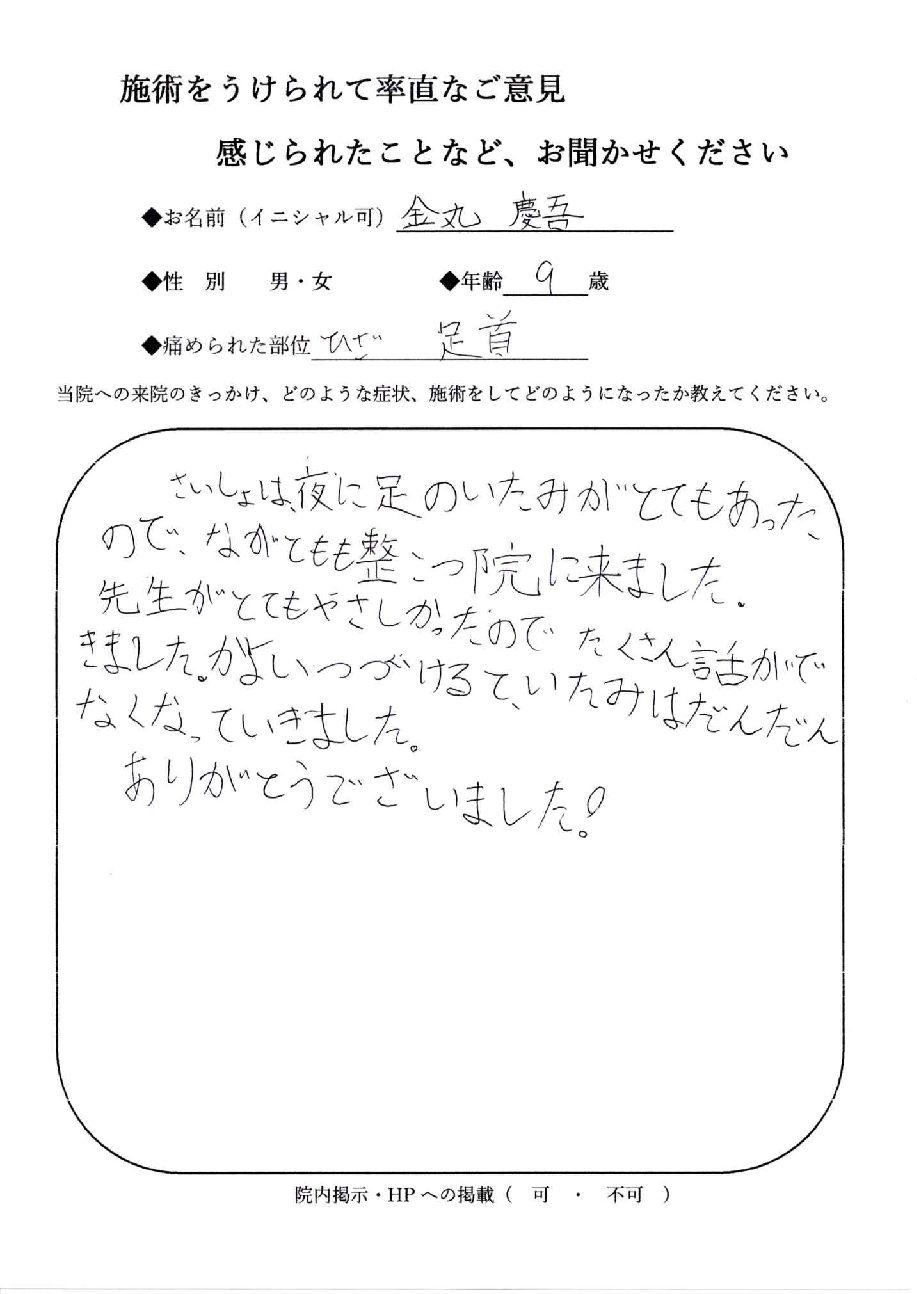 施術をうけられて率直なご意見
感じられたことなど、お聞かせください
◆お名前（イニシャル可）金丸 慶吾
◆性 別 男・女 ◆年齢 9 歳
◆痛められた部位 ひざ 足首
当院への来院のきっかけ、どのような症状、施術をしてどのようになったか教えてください。
さいしょは、夜に足のいたみがとてもあった、
ので、ながともも整こつ院に来ました。
先生がとてもやさしかったので たくさん話がで
きました。かよいつづけるて、いたみはだんだん
なくなっていきました。
ありがとうでございました！
院内掲示・HPへの掲載（ 可 ・ 不可 ）